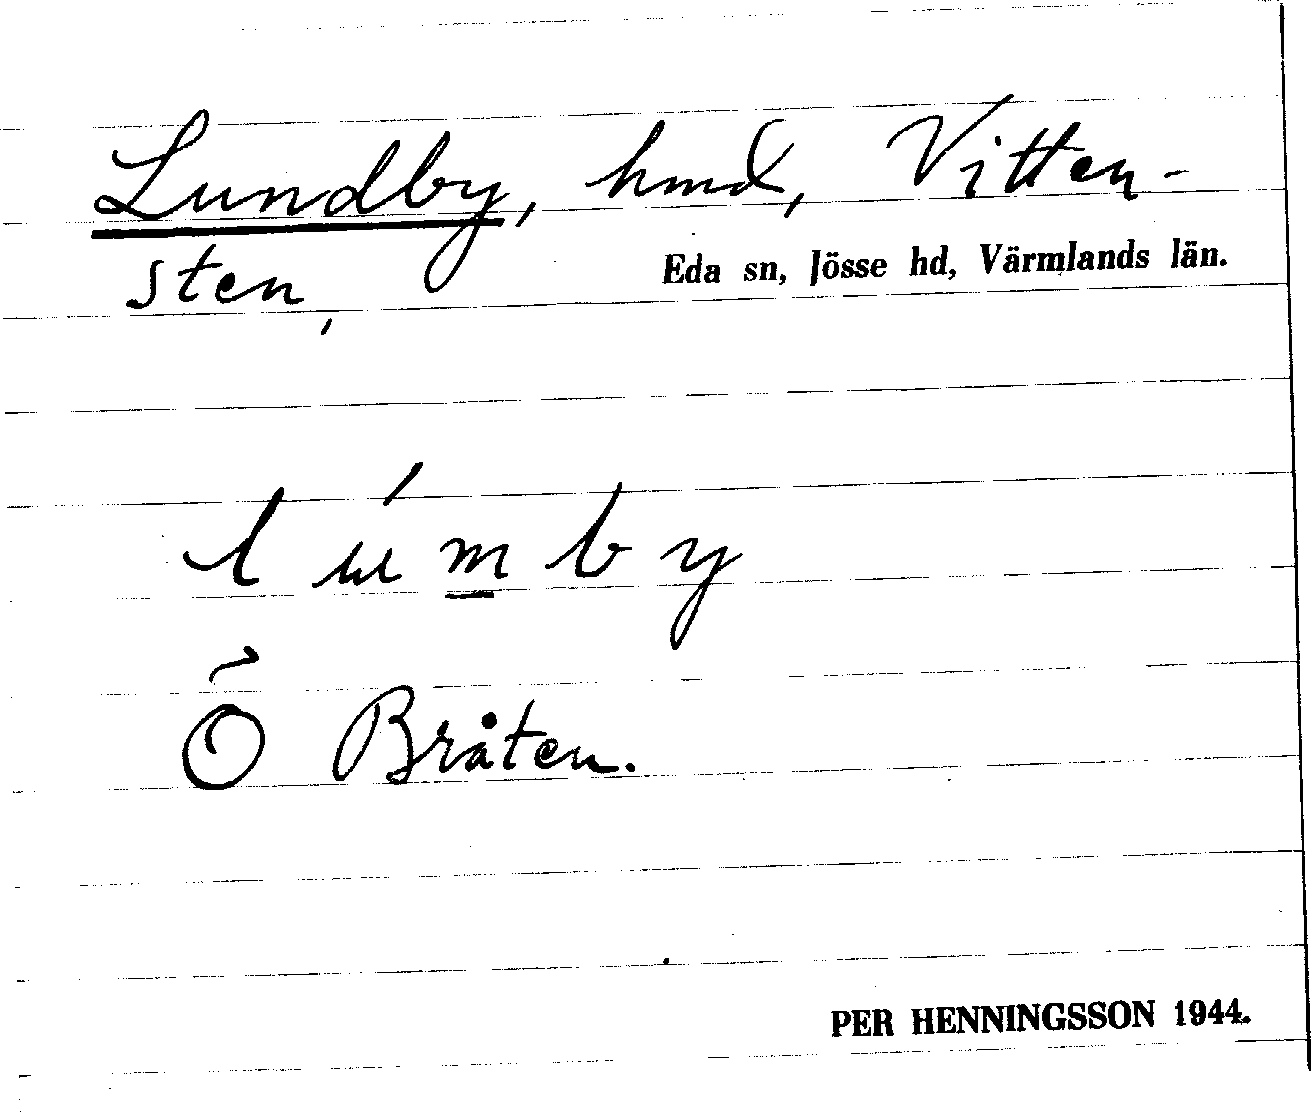 Lundby, hmd, Vitten-
sten,
Eda sn, Jösse hd, Värmlands län.
lúmby
Õ Bråten.
PER HENNINGSSON 1944.